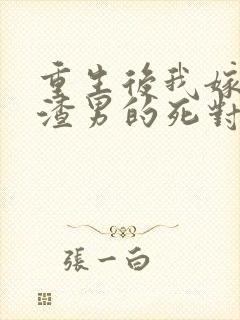 重生後我嫁
渣男的死對
張一白